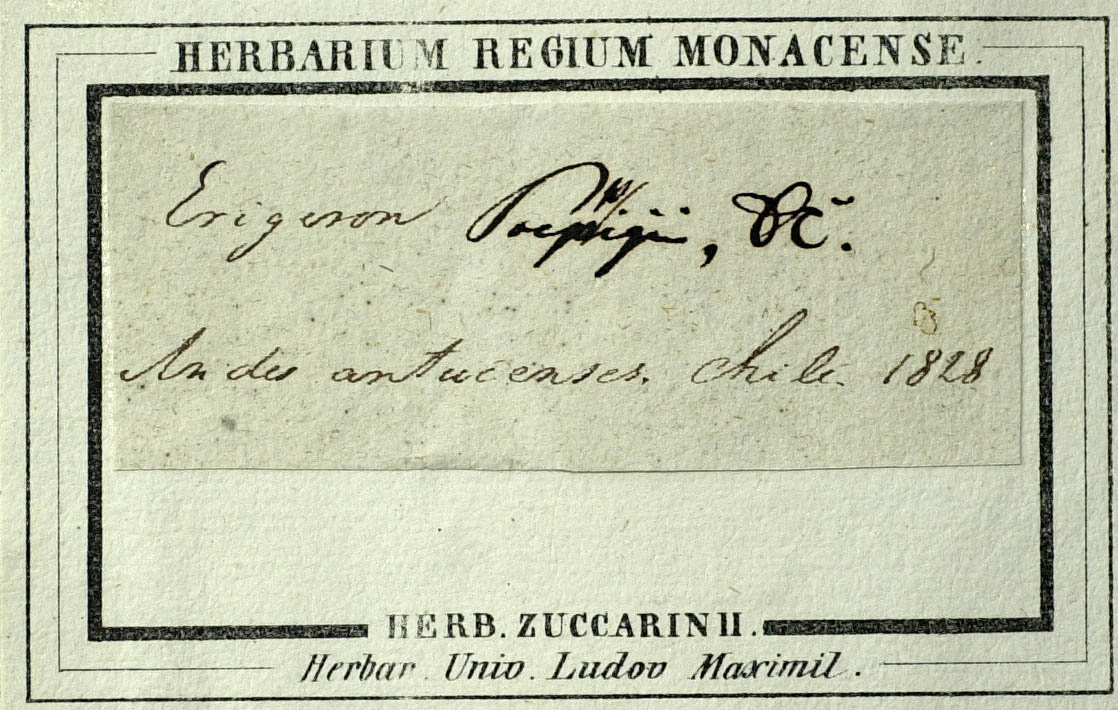 HERBARIUM REGIUM MONACENSE.
Erigeron Poeppigii, DC.
Andes antucenses. Chile. 1828
HERB. ZUCCARINII.
Herbar. Univ. Ludov Maximil.